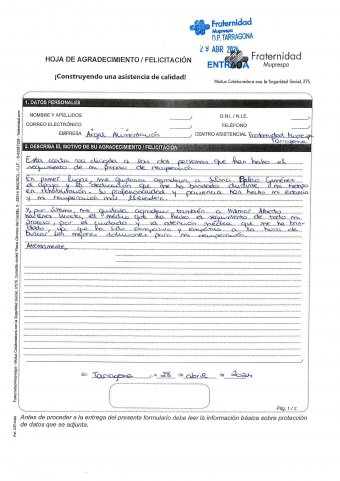 Fraternidad
Muprespa
D.P. TARRAGONA
29 ABR 2024
ENTRADA
Fraternidad
Muprespa
HOJA DE AGRADECIMIENTO / FELICITACIÓN
¡Construyendo una asistencia de calidad!
Mutua Colaboradora con la Seguridad Social, 275
1. DATOS PERSONALES
NOMBRE Y APELLIDOS
D.N.I. / N.I.E.
CORREO ELECTRÓNICO
TELÉFONO
EMPRESA Argal Alimentación
CENTRO ASISTENCIAL Fraternidad Muprespa
Tarragona
2. DESCRIBA EL MOTIVO DE SU AGRADECIMIENTO / FELICITACIÓN
Esta carta va dirigida a las dos personas que han hecho el
seguimiento de mi proceso de recuperación.
En primer lugar, me gustaría agradecer a
el apoyo y la dedicación que me ha brindado durante mi tiempo
en rehabilitación, su profesionalidad y paciencia han hecho mi estancia
y mi recuperación más llevadera.
Y por último, me gustaría agradecer también a Wilmer Alberto
el médico que ha hecho el seguimiento de todo mi
proceso, por el cuidado y la atención médica que me ha brin-
dado, ya que ha sido comprensivo y empático a la hora de
buscar las mejores soluciones para mi recuperación.
Atentamente,
en Tarragona, a 28 de abril de 2024
Pág. 1 / 2
Antes de proceder a la entrega del presente formulario debe leer la información básica sobre protección
de datos que se adjunta.